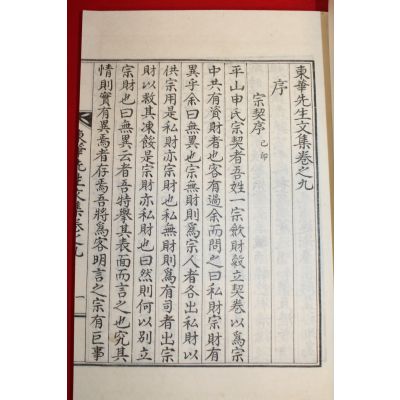 東華先生文集卷之九
序
宗契序 己卯
平山申氏宗契者吾姓一宗斂財數立契卷以爲宗
中共有資財者也客有過余而問之曰私財宗財有
異乎余曰無異也宗無財則爲宗人者各出私財以
供宗用是私財亦宗財也私無財則爲有司者出宗
財以救其凍餒是宗財亦私財也曰然則何以別立
宗財也曰無異云者吾特擧其表面而言之也究其
情則實有異焉者存焉吾將爲客明言之宗有巨事
東華先生文集卷九
一